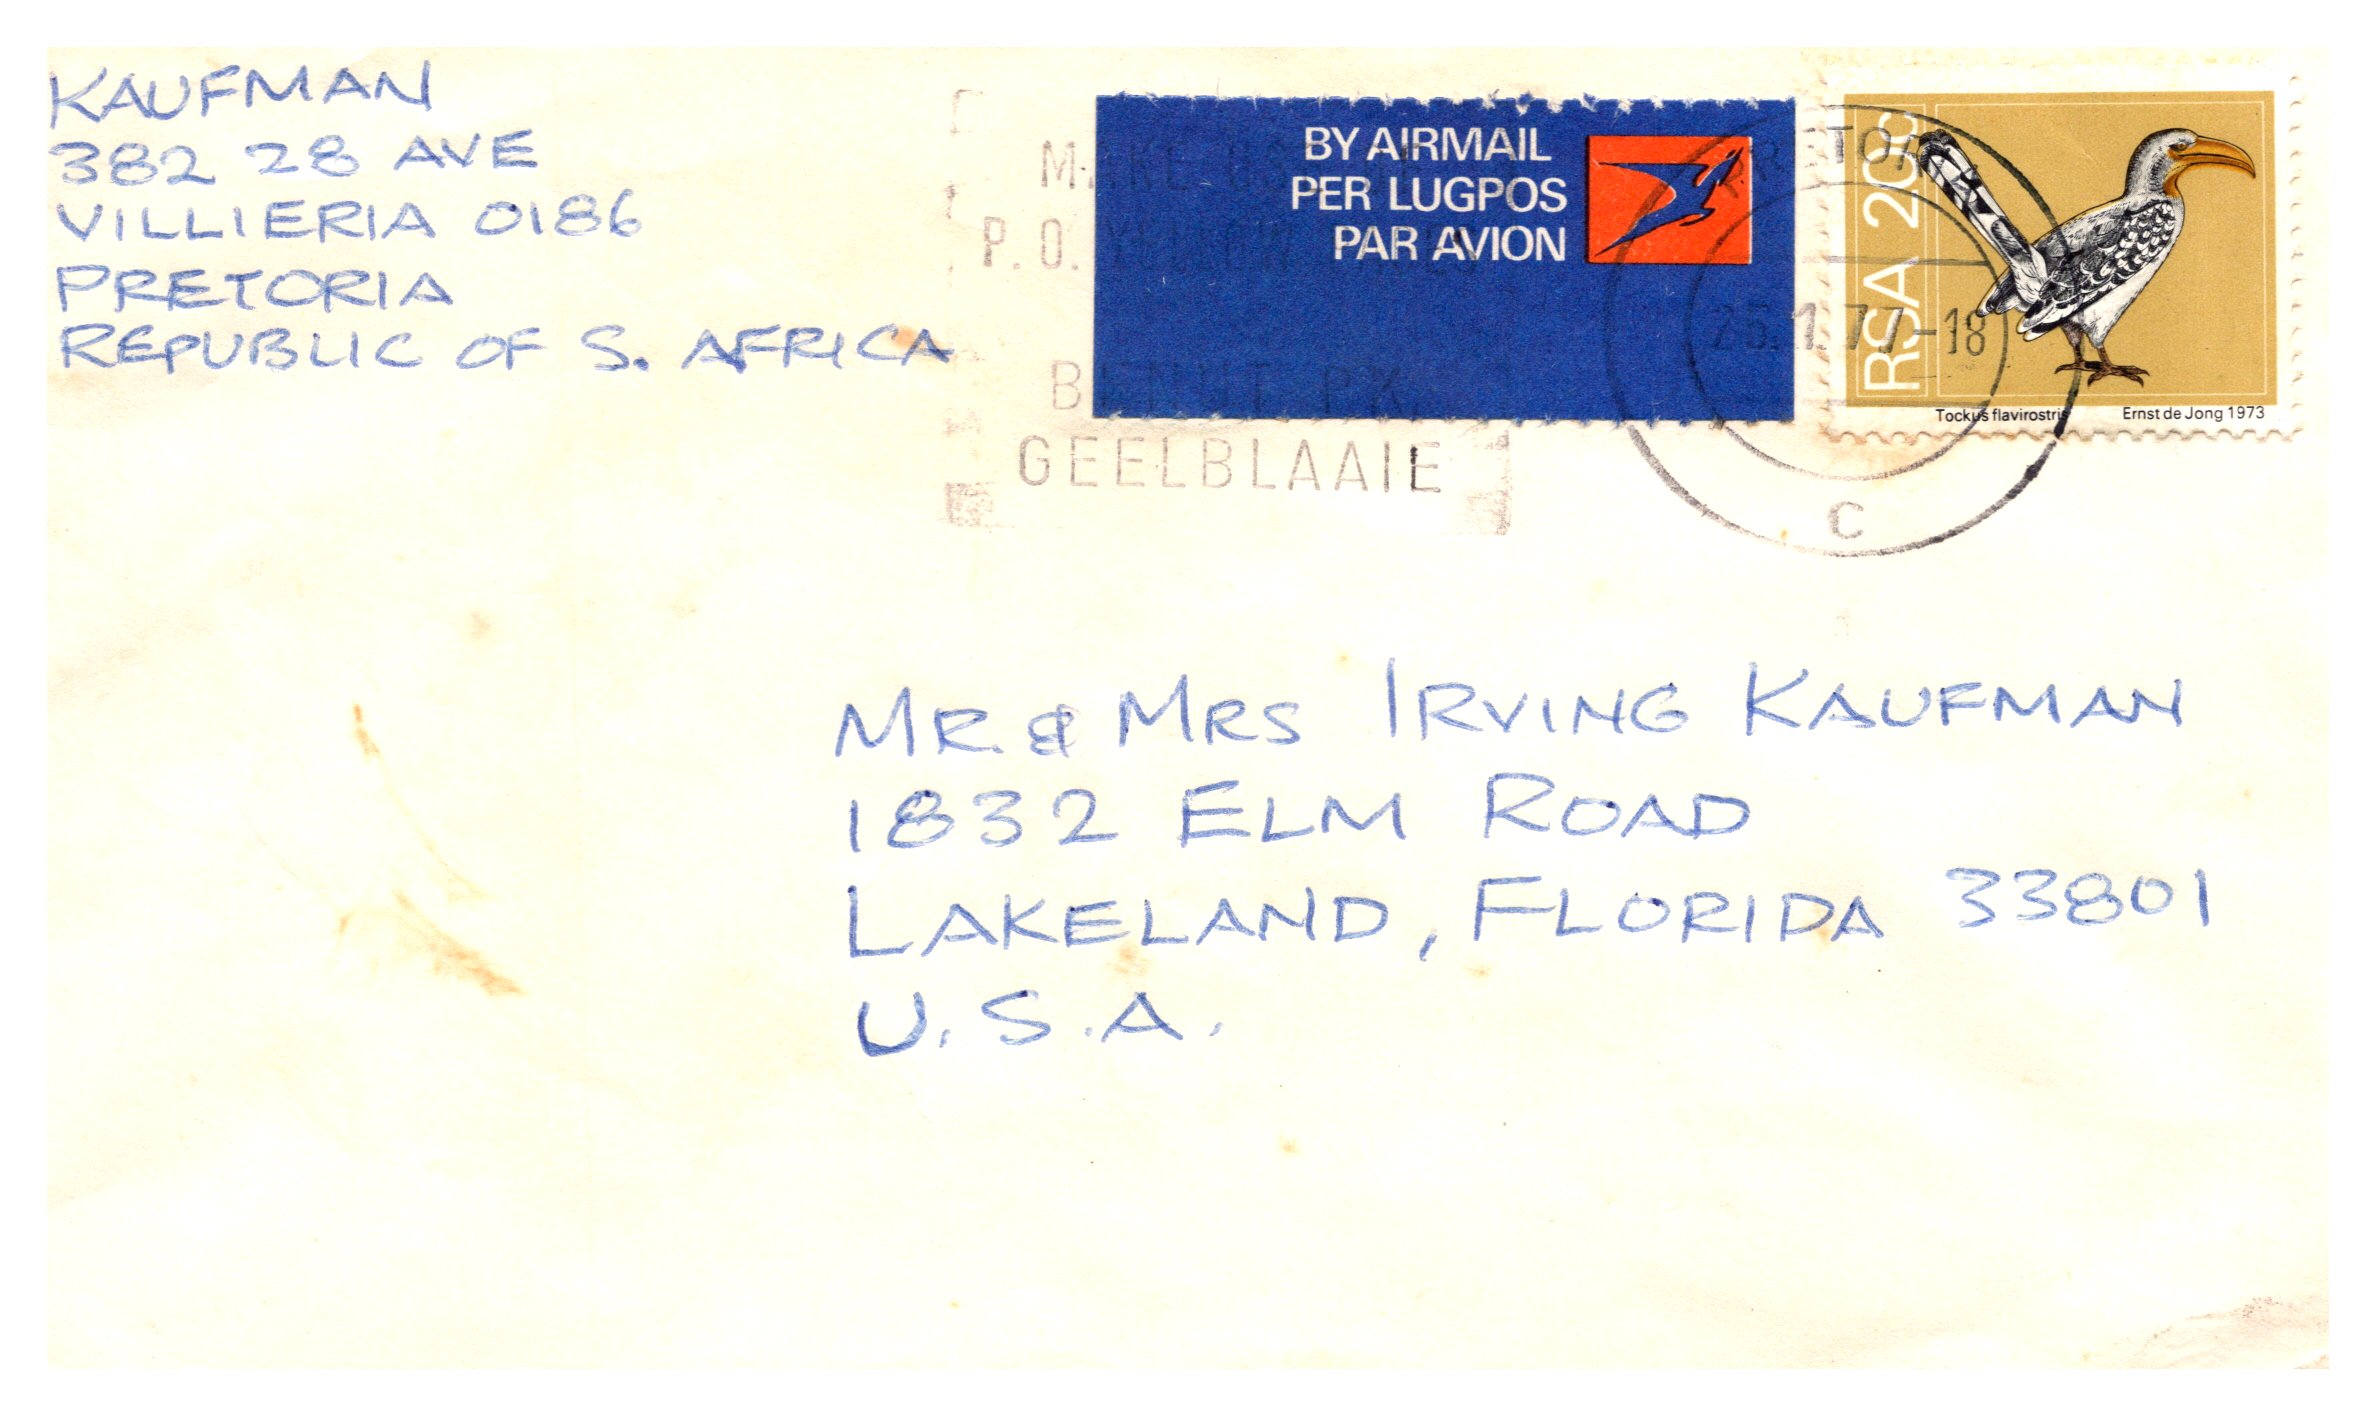 KAUFMAN
382 28 AVE
VILLIERIA 0186
PRETORIA
REPUBLIC OF S. AFRICA
MAKE USE
P.O. YELLOW
BENUT P.K.
GEELBLAAIE
BY AIRMAIL
PER LUGPOS
PAR AVION
PRETORIA
25.1.77-18
C
RSA 20c
Tockus flavirostris Ernst de Jong 1973
MR. & MRS IRVING KAUFMAN
1832 ELM ROAD
LAKELAND, FLORIDA 33801
U.S.A.